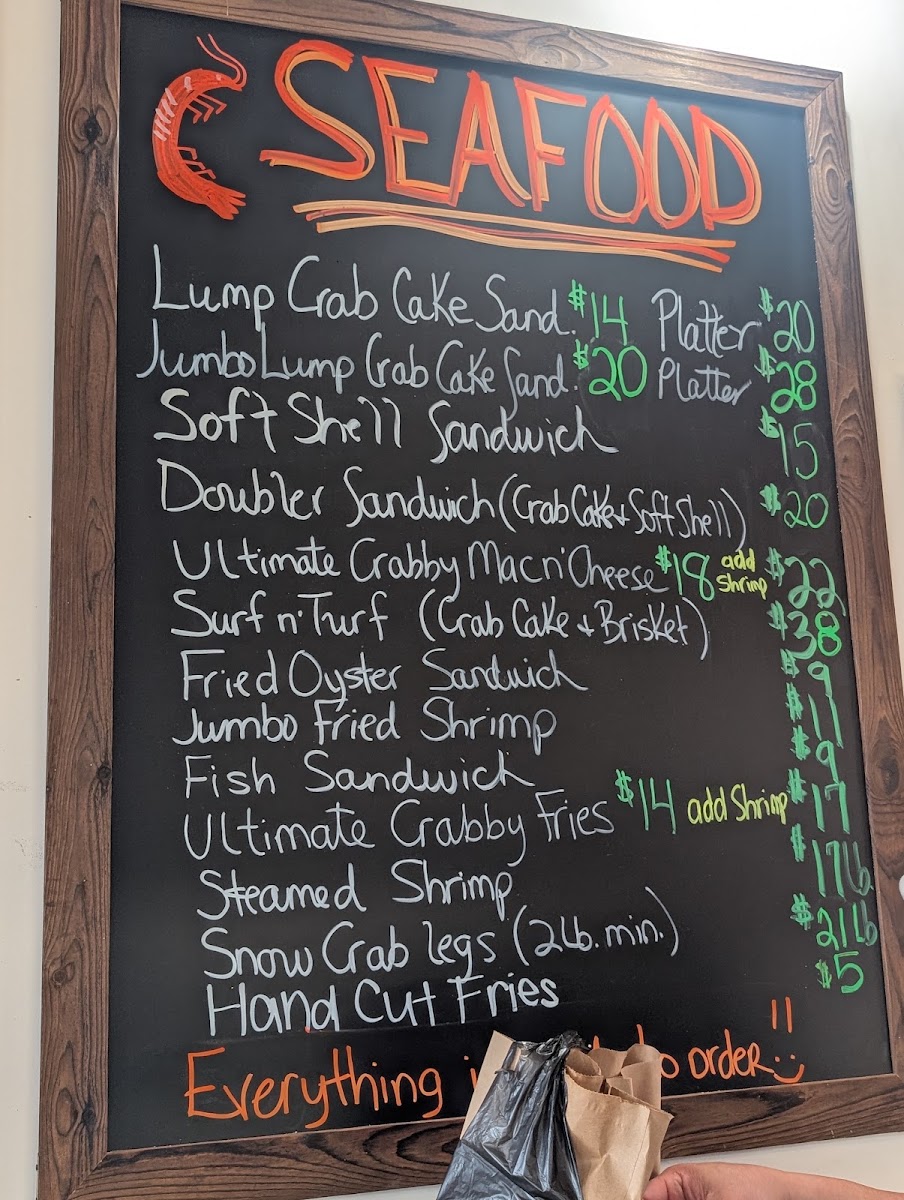 SEAFOOD
Lump Crab Cake Sand. $14 Platter $20
Jumbo Lump Crab Cake Sand. $20 Platter $28
Soft Shell Sandwich $15
Doubler Sandwich (Crab Cake + Soft Shell) $20
Ultimate Crabby Mac n' Cheese $18 add Shrimp $22
Surf n' Turf (Crab Cake + Brisket) $38
Fried Oyster Sandwich $9
Jumbo Fried Shrimp $11
Fish Sandwich $9
Ultimate Crabby Fries $14 add Shrimp $17
Steamed Shrimp $17 lb
Snow Crab legs (2 Lb. min.) $21 lb
Hand Cut Fries $5
Everything to order!!